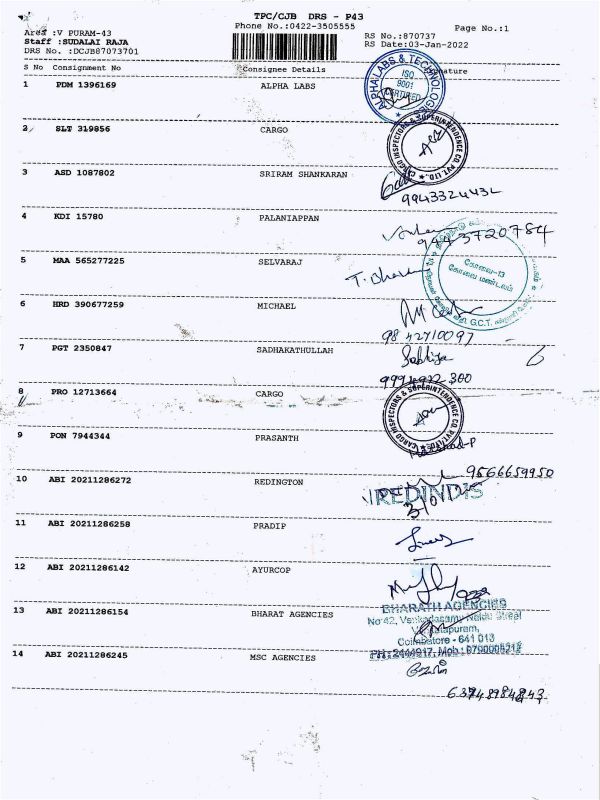 TPC/CJB DRS - P43
Area :V PURAM-43
Phone No.:0422-3505555
Page No.:1
Staff :SUDALAI RAJA
RS No.:870737
DRS No. :DCJB87073701
RS Date:03-Jan-2022
S No Consignment No Consignee Details
1 PDM 1396169 ALPHA LABS
ALPHA LABS & TECHNOLOGY
ISO
9001
CERTIFIED
2 SLT 319856 CARGO
CARGO INSPECTORS & SUPERINTENDENCE CO. PVT. LTD.
3 ASD 1087802 SRIRAM SHANKARAN
9943324432
4 KDI 15780 PALANIAPPAN
9443720784
5 MAA 565277225 SELVARAJ
கோவை-13
கோவை மண்டலம்
G.C.T.
6 HRD 390677259 MICHAEL
9842710097
7 PGT 2350847 SADHAKATHULLAH
Sabhiya
9994922300
8 PRO 12713664 CARGO
CARGO INSPECTORS & SUPERINTENDENCE CO. PVT. LTD.
9 PON 7944344 PRASANTH
9566659950
10 ABI 20211286272 REDINGTON
REDINDIS
11 ABI 20211286258 PRADIP
12 ABI 20211286142 AYURCOP
13 ABI 20211286154 BHARAT AGENCIES
BHARATH AGENCIES
No 42, Venkadasamy Naidu Street
Coimbatore - 641 013
PH : 2444917, Mob :
14 ABI 20211286245 MSC AGENCIES
63748984843